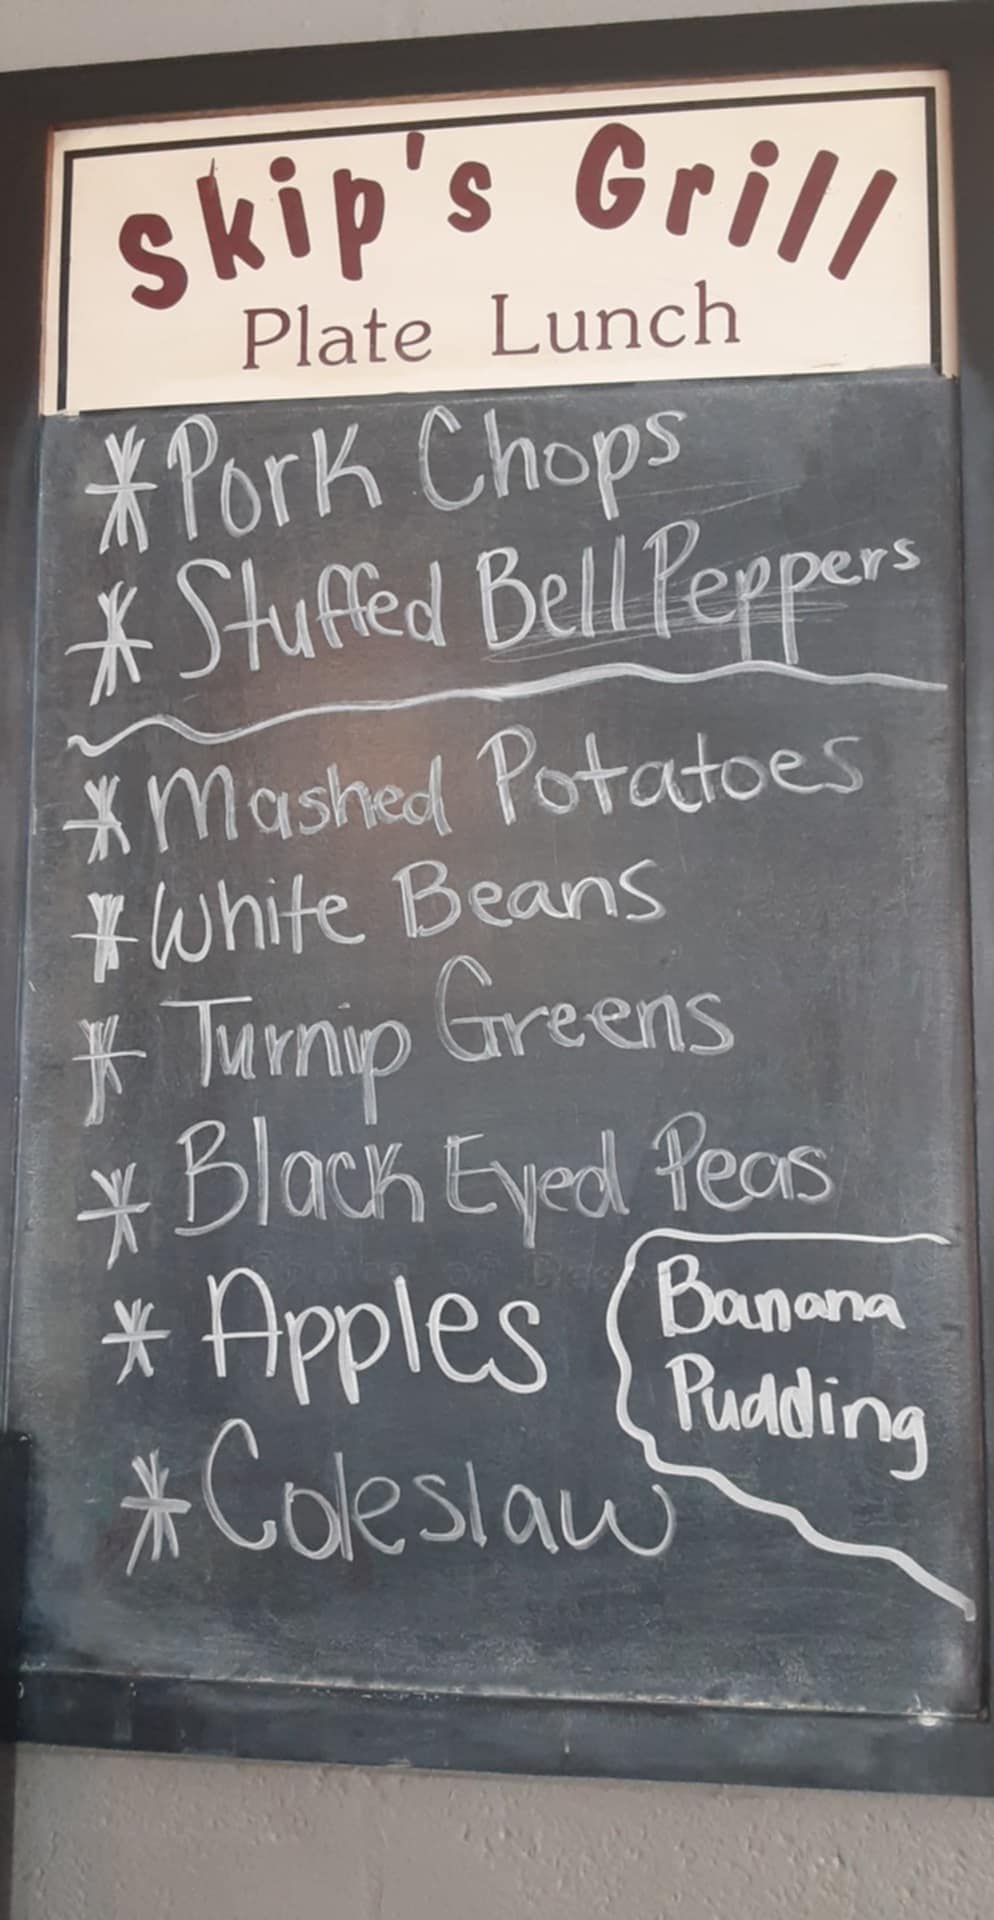 Skip's Grill
Plate Lunch
* Pork Chops
* Stuffed Bell Peppers
* Mashed Potatoes
* White Beans
* Turnip Greens
* Black Eyed Peas
* Apples
* Coleslaw
Banana
Pudding